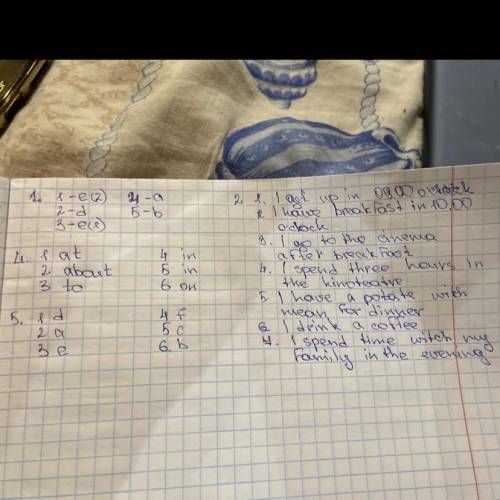 1. 1-e(2) 4-a
2-d 5-b
3-e(1)
4. 1 at 4 in
2 about 5 in
3 to 6 on
5. 1 d 4 f
2 a 5 c
3 e 6 b
2. 1. I get up in 09.00 o'clock
2 I have breakfast in 10.00
o'clock
3. I go to the cinema
after breakfast
4. I spend three hours in
the kinoteatre
5. I have a potate with
mean for dinner
6. I drink a coffee
7. I spend time witch my
family in the evening